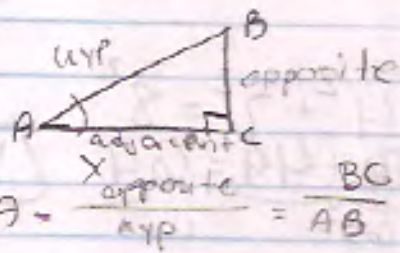 B
hyp
opposite
A
adjacent C
X
opposite
hyp
= BC
AB